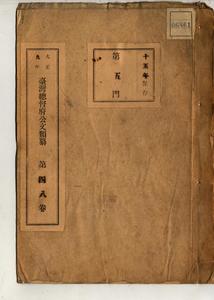 十五年保存
第五門
大正九年
臺灣總督府公文類纂
第四八卷